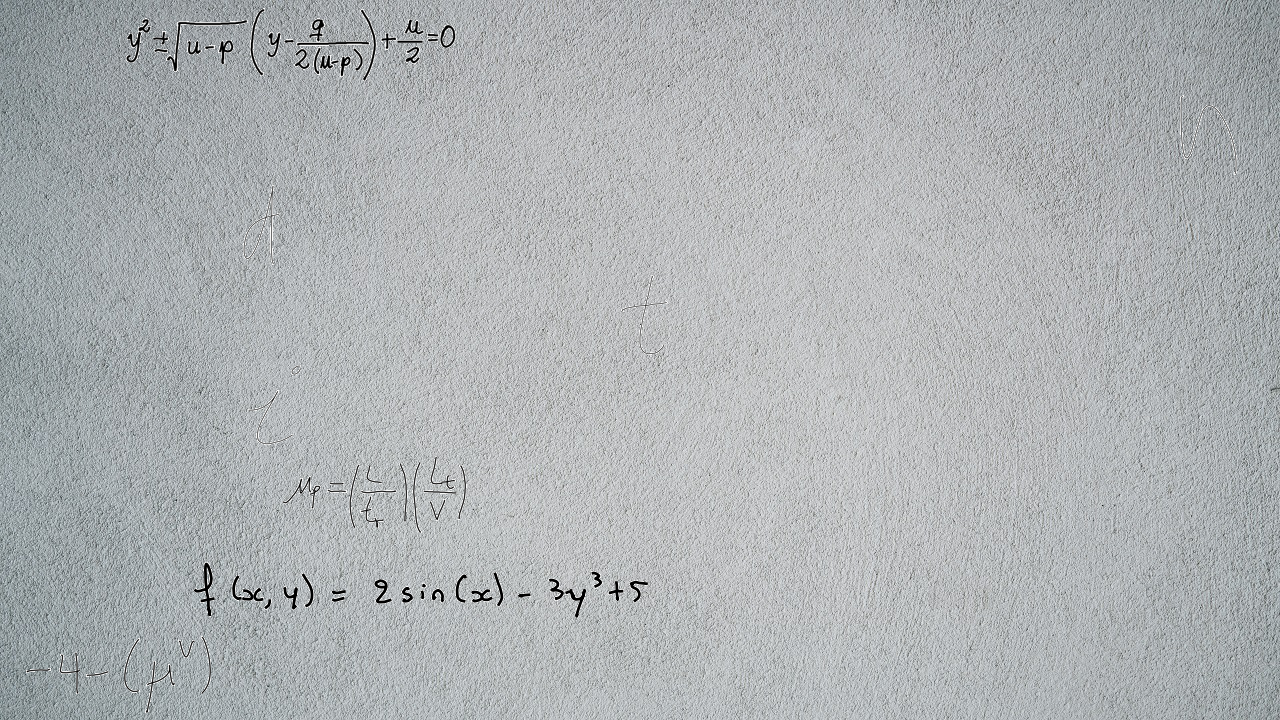 y² ± √(u-p) (y - q/(2(u-p))) + u/2 = 0
n
d
t
i
μ_p = (L/t_t)(L_t/V)
f(x, y) = 2 sin(x) - 3y³ + 5
-4-(μ^V)